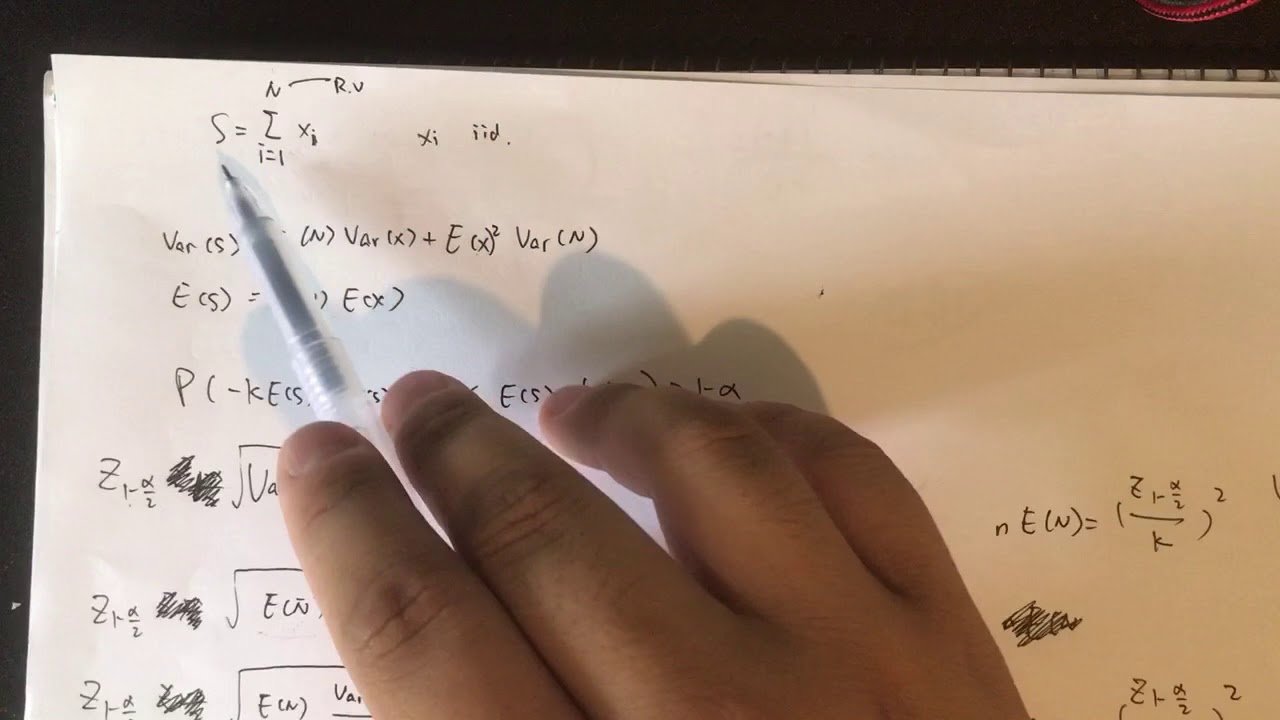 N R.V
S = Σ xi xi iid.
i=1
Var(S) (N) Var(x) + E(x)² Var(N)
E(S) = ) E(x)
P(-kE(S E(S) ) = 1-α
Z1-α/2 √Va
n E(N) = (Z1-α/2 / k)²
Z1-α/2 √E(N)
Z1-α/2 √E(N) Var
Z1-α/2 2